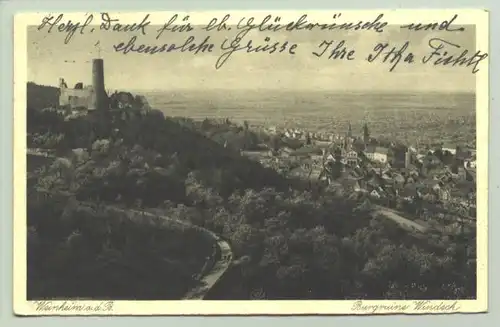 Herzl. Dank für lb. Glückwünsche und
ebensolche Grüsse Ihre Itha Fichtl
Weinheim a.d.B.
Burgruine Windeck